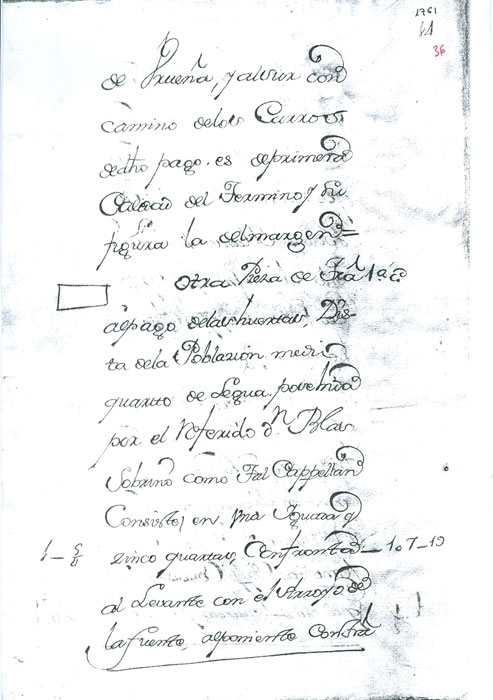 1761
36
de Prueña, y al sur con
camino de los Carros
de dho pago. es de primera
Calidad del Termino, y su
figura la del margen =
Otra Pieza de
al pago de las huertas, Dis-
ta de la Poblazion medio
quarto de Legua. posehida
por el Referido dn. Blas
Sobrino como tal Cappellan
Consiste, en una Iguada y
zinco quartas, Confronta
1.7-19
al Levante con el Arroyo de
la fuente, al poniente con